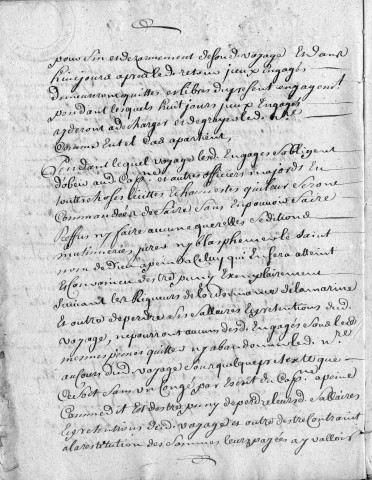 pour fin et desarmement desond. voyage Et dans
huit jours apres led. retour jceux Engagés
demeureront quittes et libres du present engagemt
pendant lesquels huit jours jceux Engagés
ayderont a decharger et degreyer led. nre
Comme En tel Cas apartient
Pendant lequel voyage lesd. Engagés Sobligent
dobeir aud. Capne et autres officiers majors En
touttes choses licittes et honnestes qui leur Seront
Commandées de faire Sans En pouvoir faire
Reffus ny faire aucune querelles Seditions
mutineries jurer ny blasphemer le Saint
nom de Dieu apeine a Celuy qui En sera atteint
Et Convaincu destre puny Exemplairement
Suivant les Rigueurs de lordonnance de la marine
Et outre de perdre Ses Sallaires Et pretentions dud.
voyage, ne pourront aucuns desd. Engagés Sous les
mesmes peines quitter ny abandonner led. nre
au Cours dud. voyage Sous quelque pretexte que
Ce Soit Sans un Congé par Escrit du Capne apeine
Comme dit Est destre puny de perdre leursd. Sallaires
Et pretentions dud. voyage et outre destre Contraint
a la restitution des Sommes leurs payées